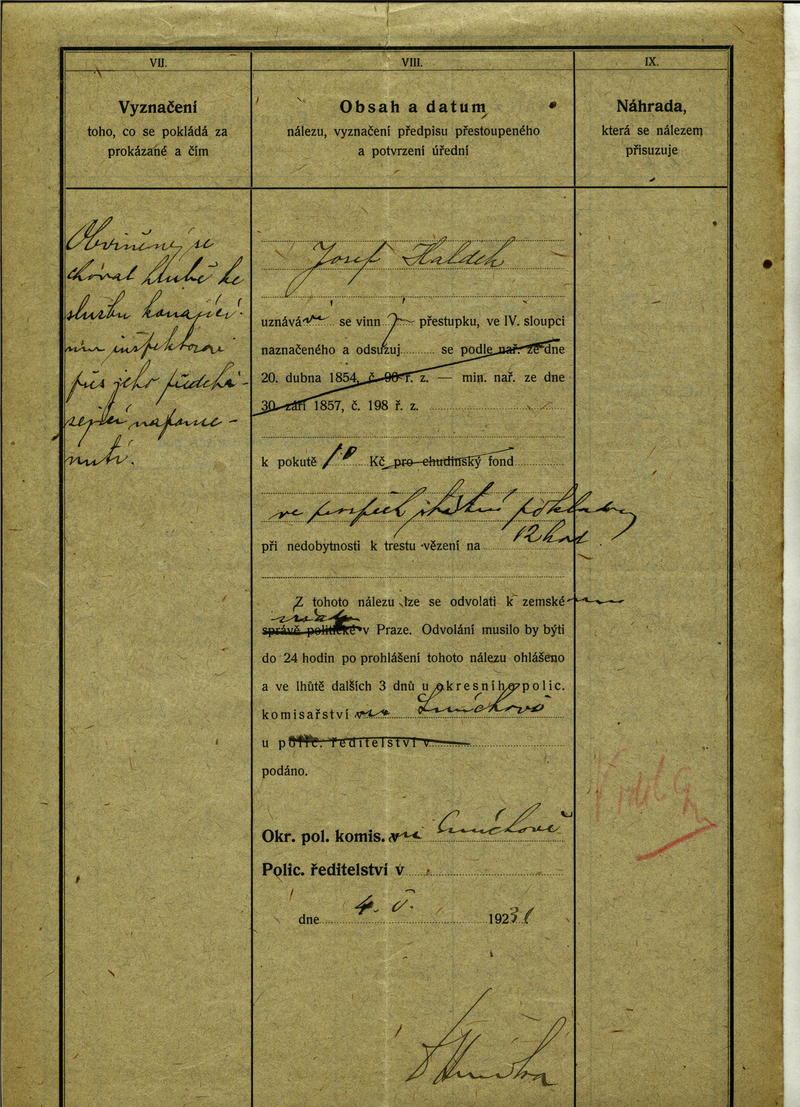 VII.
Vyznačení
toho, co se pokládá za
prokázané a čím
Obviněný se
choval hrubě ke
službu konající-
mu inspektorovi
přes jeho předchá-
zející napome-
nutí.
VIII.
Obsah a datum
nálezu, vyznačení předpisu přestoupeného
a potvrzení úřední
Josef
uznává se vinn ý přestupku, ve IV. sloupci
naznačeného a odsuzuj se podle nař. ze dne
20. dubna 1854, č. 96 ř. z. — min. nař. ze dne
30. září 1857, č. 198 ř. z.
k pokutě 10 Kč pro chudinský fond
ve prospěch státní pokladny
při nedobytnosti k trestu vězení na 12 hod
Z tohoto nálezu lze se odvolati k zemské
správě politické v Praze. Odvolání musilo by býti
do 24 hodin po prohlášení tohoto nálezu ohlášeno
a ve lhůtě dalších 3 dnů u okresního polic.
komisařství na Smíchově
u polic. ředitelství v
podáno.
Okr. pol. komis. na Smíchově
Polic. ředitelství v
dne 4. V. 1931
IX.
Náhrada,
která se nálezem
přisuzuje